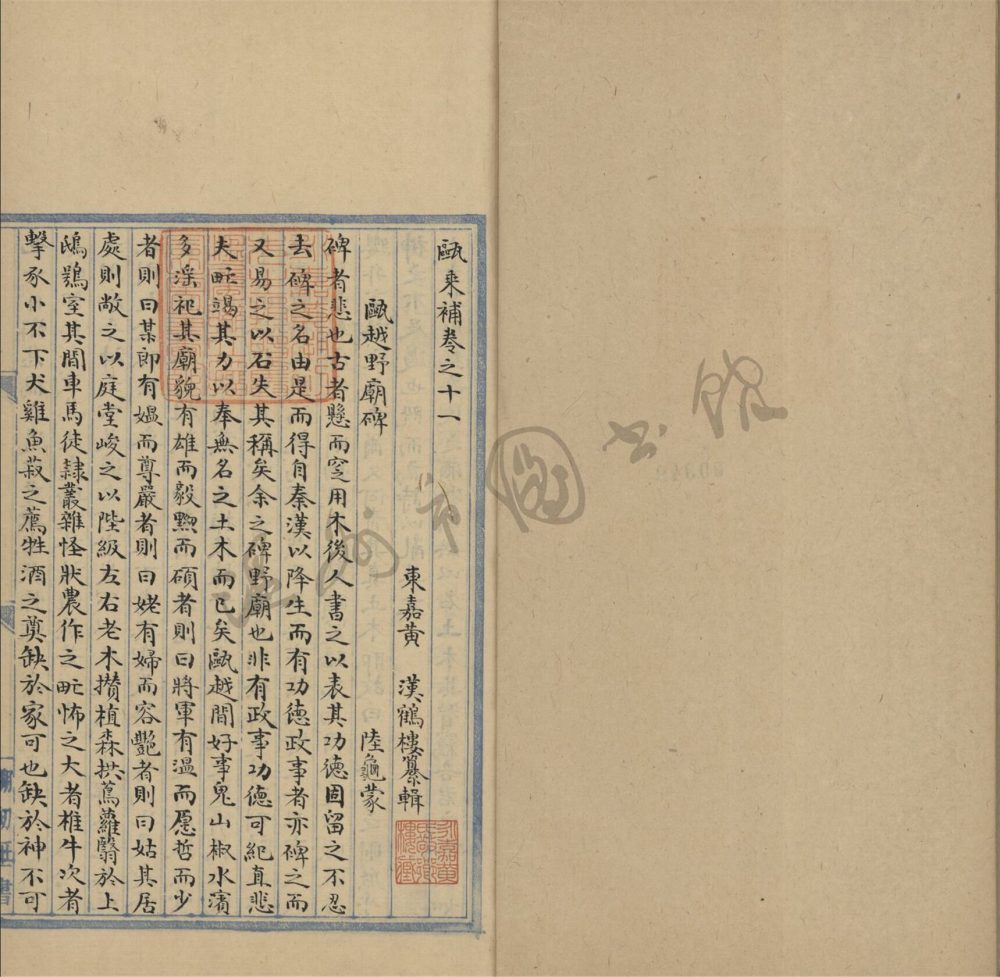 甌乘補卷之十一
東嘉黃　漢鶴樓纂輯
甌越野廟碑　陸龜蒙
碑者悲也古者懸而窆用木後人書之以表其功德因留之不忍
去碑之名由是而得自秦漢以降生而有功德政事者亦碑之而
又易之以石失其稱矣余之碑野廟也非有政事功德可紀直悲
夫甿竭其力以奉無名之土木而已矣甌越間好事鬼山椒水濱
多淫祀其廟貌有雄而毅黝而碩者則曰將軍有溫而愿哲而少
者則曰某郎有媼而尊嚴者則曰姥有婦而容艷者則曰姑其居
處則敞之以庭堂峻之以陛級左右老木攢植森拱蔦蘿翳於上
鴟鴞室其間車馬徒隸叢雜怪狀農作之甿怖之大者椎牛次者
擊豕小不下犬雞魚菽之薦牲酒之奠缺於家可也缺於神不可
溫州市圖書館